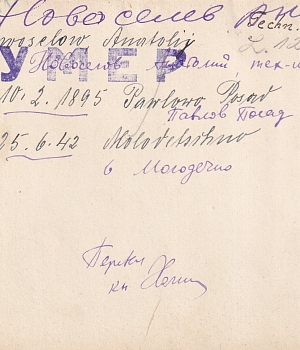 Новоселов
Techn.
woselow Anatolij
УМЕР
Новоселов Анатолий, тех-н
10.2.1895 Pawlowo Posad
Павлов Посад
25.6.42 Molodetschno
в Молодечно